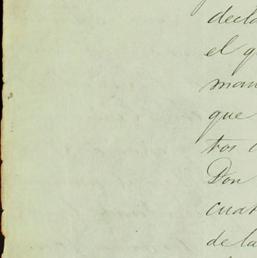 decla
el q
man
que
tros
Don
cuan
de la